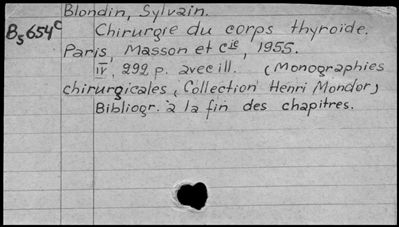 Blondin, Sylvain.
B5654c Chirurgie du corps thyroïde.
Paris, Masson et Cie, 1955.
IV, 292 p. avec ill. (Monographies
chirurgicales, Collection Henri Mondor)
Bibliogr. à la fin des chapitres.